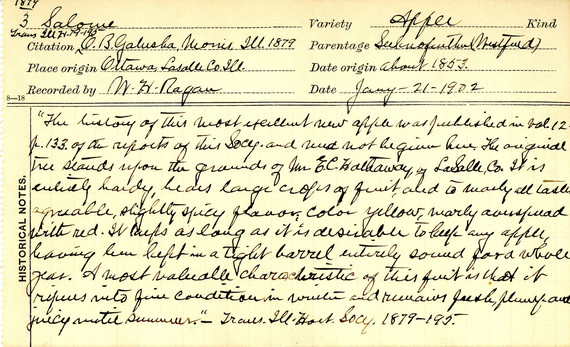 1879
3 Salome Variety Apple Kind
Trans. Ill. H. 79-195
Citation O. B. Galusha, Morris Ill. 1879 Parentage (Westfield)
Place origin Ottawa, LaSalle Co. Ill. Date origin about 1853.
Recorded by W. H. Ragan Date Jany-21-1902
8—18
HISTORICAL NOTES.
"The history of this most excellent new apple was published in vol. 12-
p. 133. of the reports of this Socy. and need not be given here. The original
tree stands upon the grounds of Mr E. C. Hathaway, of LaSalle, Co. It is
entirely hardy, bears large crops of fruit and to nearly all tastes
agreeable, slightly spicy flavor, color yellow, nearly overspread
with red. It keeps as long as it is desirable to keep any apple,
having been kept in a tight barrel entirely sound for a whole
year. A most valuable characteristic of this fruit is that it
ripens into fine condition in winter and remains fresh, plump and
juicy until summer."- Trans. Ill. Hort. Socy. 1879-195.